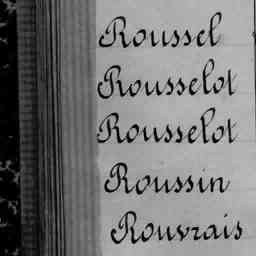 Roussel
Rousselot
Rousselot
Roussin
Rouvrais